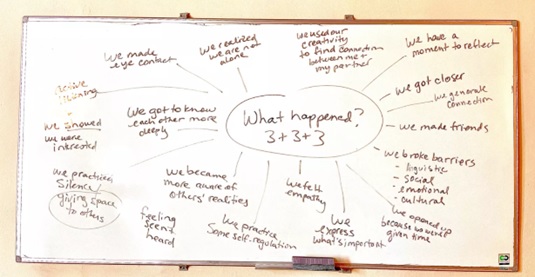 What happened?
3+3+3
we made
eye contact
we realized
we are not
alone
we used our
creativity
to find connection
between me +
my partner
we have a
moment to reflect
we got closer
we generate
connection
we made friends
we broke barriers
- linguistic
- social
- emotional
- cultural
we opened up
because we were
given time
we
express
what's important
we felt
empathy
we practice
some self-regulation
we became
more aware of
others' realities
feeling
seen +
heard
we practiced
silence/
giving space
to others
we showed
we were
interested
active
listening
we got to know
each other more
deeply